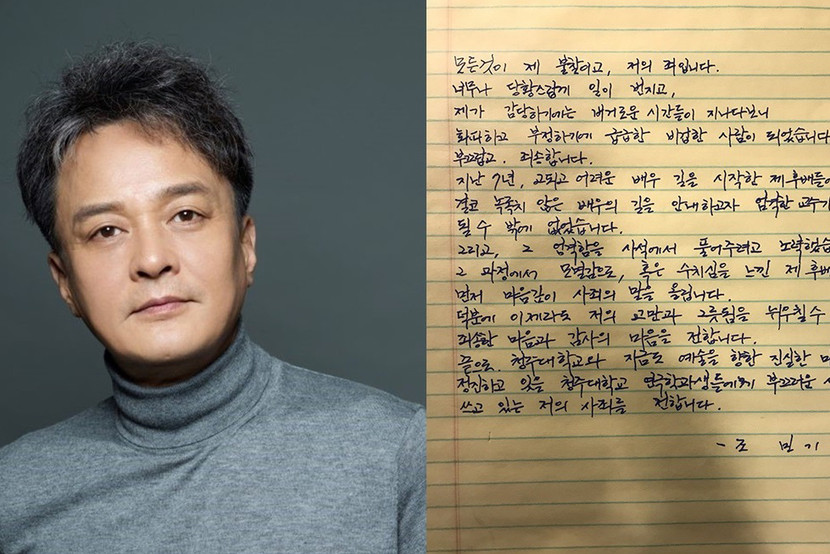 모든것이 제 불찰이고, 저의 죄입니다.
너무나 당황스럽게 일이 번지고,
제가 감당하기에는 버거로운 시간들이 지나다보니
회피하고 부정하기에 급급한 비겁한 사람이 되었습니다
부끄럽고, 죄송합니다.
지난 7년, 고되고 어려운 배우 길을 시작한 제 후배들에
결코 녹록치 않은 배우의 길을 안내하고자 엄격한 교수가
될 수 밖에 없었습니다.
그리고, 그 엄격함을 사석에서 풀어주려고 노력했습
그 과정에서 모멸감으로, 혹은 수치심을 느낀 제 후배
먼저 마음깊이 사죄의 말을 올립니다.
덕분에 이제라도 저의 교만과 그릇됨을 뉘우칠수
죄송한 마음과 감사의 마음을 전합니다.
끝으로 청주대학교와 지금도 예술을 향한 진실한 마
정진하고 있을 청주대학교 연극학과생들에게 부끄러운 사
쓰고 있는 저의 사죄를 전합니다.
- 조 민 기